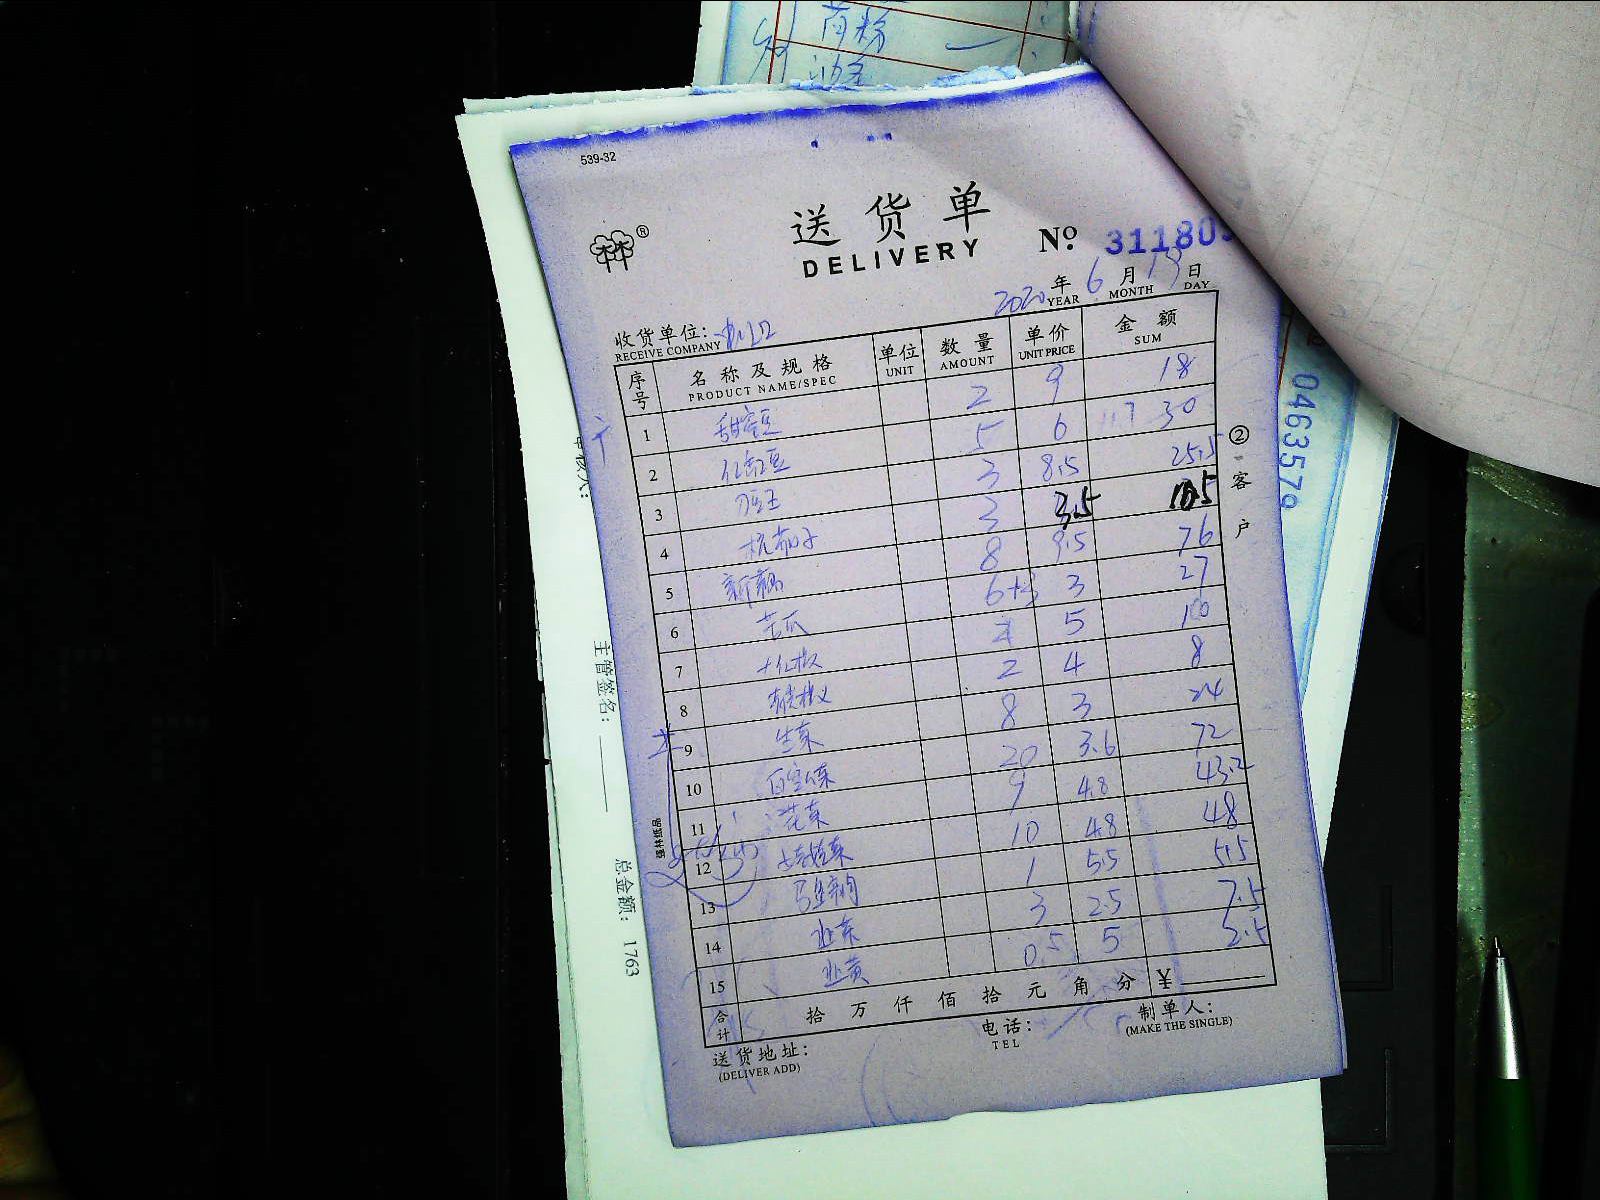 539-32
送货单
DELIVERY
No. 31180
2020年 YEAR 6月 MONTH 19日 DAY
收货单位:
RECEIVE COMPANY
序号 名称及规格 PRODUCT NAME/SPEC 单位 UNIT 数量 AMOUNT 单价 UNIT PRICE 金额 SUM
1 甜蜜豆 2 9 18
2 红缸豆 5 6 30
3 刀豆王 3 8.5 25.5
4 杭茄子 3 3.5 10.5
5 新藕 8 9.5 76
6 苦瓜 6+3 3 27
7 大红椒 2 5 10
8 青尖椒 2 4 8
9 生菜 8 3 24
10 20 3.6 72
11 花菜 9 4.8 43.2
12 10 4.8 48
13 1 5.5 5.5
14 韭菜 3 2.5 7.5
15 韭黄 0.5 5 2.5
合计 拾万仟佰拾元角分 ¥
送货地址:
(DELIVER ADD)
电话:
TEL
制单人:
(MAKE THE SINGLE)
②客户
强林纸品
0463579
主管签名:
总金额: 1763